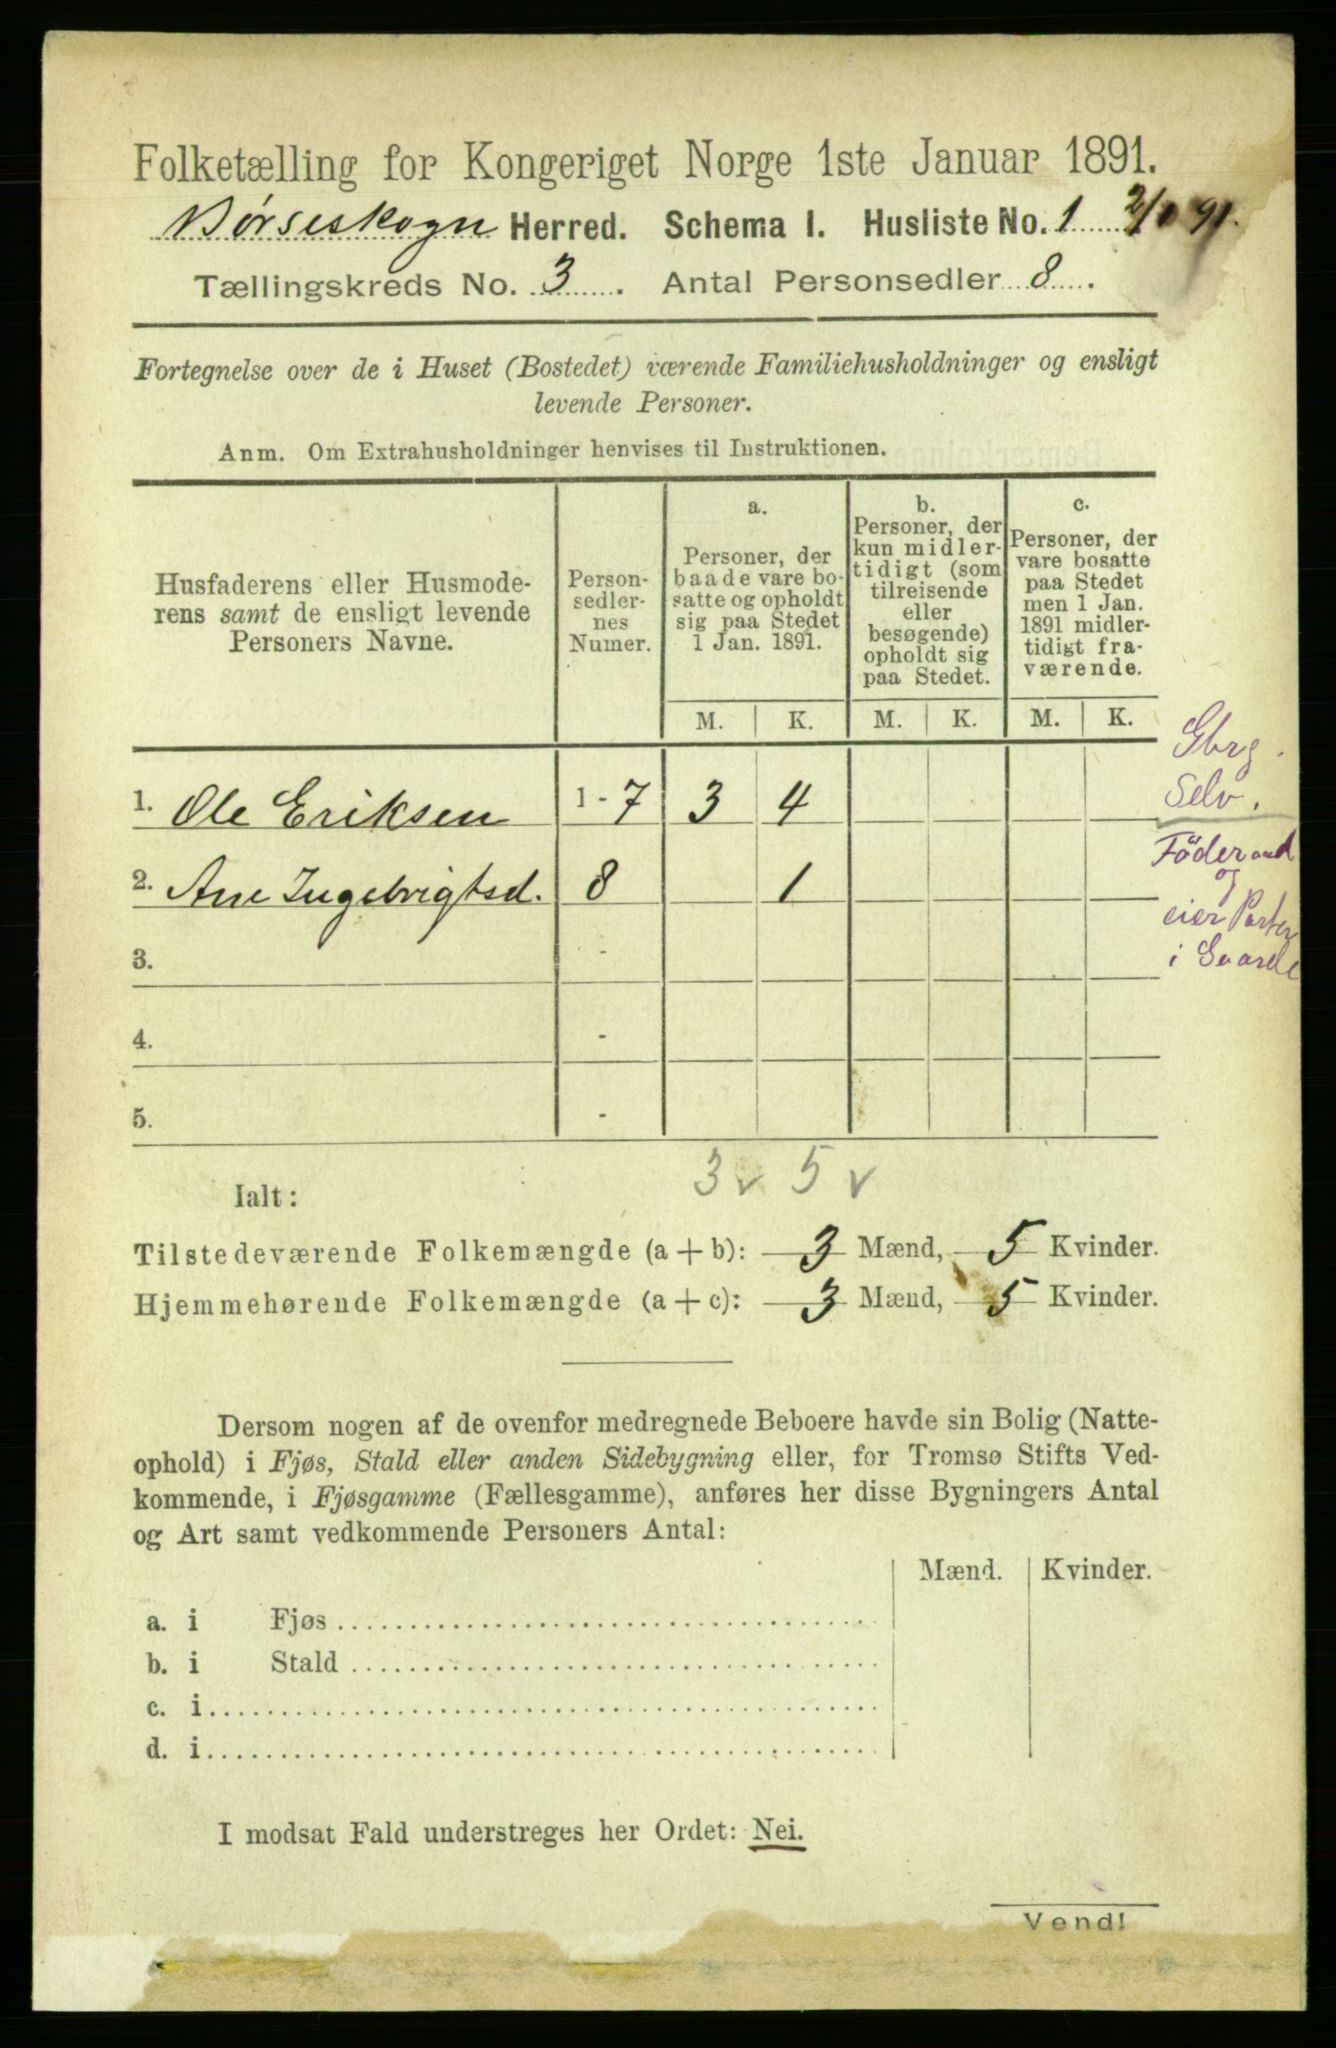 Folketælling for Kongeriget Norge 1ste Januar 1891.
Børseskogn Herred. Schema I. Husliste No. 1
Tællingskreds No. 3. Antal Personsedler 8.
Fortegnelse over de i Huset (Bostedet) værende Familiehusholdninger og ensligt
levende Personer.
Anm. Om Extrahusholdninger henvises til Instruktionen.
Husfaderens eller Husmode-
rens samt de ensligt levende
Personers Navne.
Person-
sedler-
nes
Numer.
a.
Personer, der
baade vare bo-
satte og opholdt
sig paa Stedet
1 Jan. 1891.
b.
Personer, der
kun midler-
tidigt (som
tilreisende
eller
besøgende)
opholdt sig
paa Stedet.
c.
Personer, der
vare bosatte
paa Stedet
men 1 Jan.
1891 midler-
tidigt fra-
værende.
M. K. M. K. M. K.
Gbrg.
Selv.
1. Ole Eriksen 1 - 7 3 4
Föderaad
og
eier Parter
i Gaarde
2. Ane Ingebrigtsd. 8 1
3. -
4. -
5. -
3 v 5 v
Ialt:
Tilstedeværende Folkemængde (a + b): 3 Mænd, 5 Kvinder.
Hjemmehørende Folkemængde (a + c): 3 Mænd, 5 Kvinder.
Dersom nogen af de ovenfor medregnede Beboere havde sin Bolig (Natte-
ophold) i Fjøs, Stald eller anden Sidebygning eller, for Tromsø Stifts Ved-
kommende, i Fjøsgamme (Fællesgamme), anføres her disse Bygningers Antal
og Art samt vedkommende Personers Antal:
Mænd. Kvinder.
a. i Fjøs
b. i Stald
c. i
d. i
I modsat Fald understreges her Ordet: Nei.
Vend!